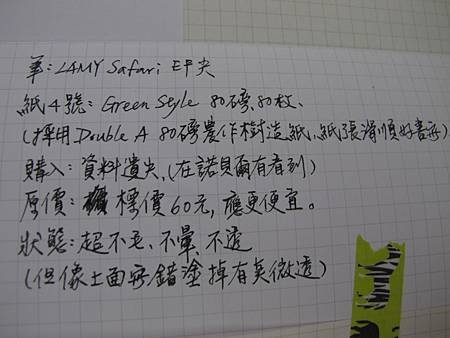 筆：LAMY Safari EF尖
紙4號：Green Style 80磅、80枚、
(採用Double A 80磅農作樹造紙、紙張滑順好書寫)
購入：資料遺失、(在諾貝爾有看到)
原價：標價60元，應更便宜。
狀態：超不毛、不暈、不透
(但像上面寫錯塗掉有美微透)